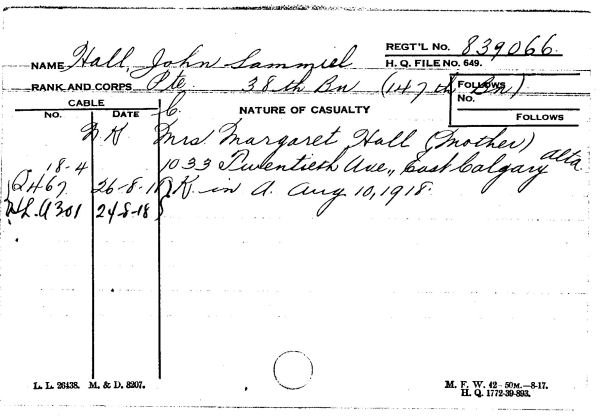 NAME Hall, John Sammiel REGT'L NO. 839066.
H. Q. FILE NO. 649.
RANK AND CORPS Pte 38th Bn (147th Bn)
FOLLOWS
No.
FOLLOWS
CABLE
NO. DATE
NATURE OF CASUALTY
N K Mrs Margaret Hall (Mother)
18-4 1033 Twentieth Ave., East Calgary Alta.
Q467 26-8-18 K. in A. Aug 10, 1918.
HL.A301 24-8-18
L. L. 26438. M. & D. 8207.
M. F. W. 42—50M.—8-17.
H. Q. 1772-39-893.